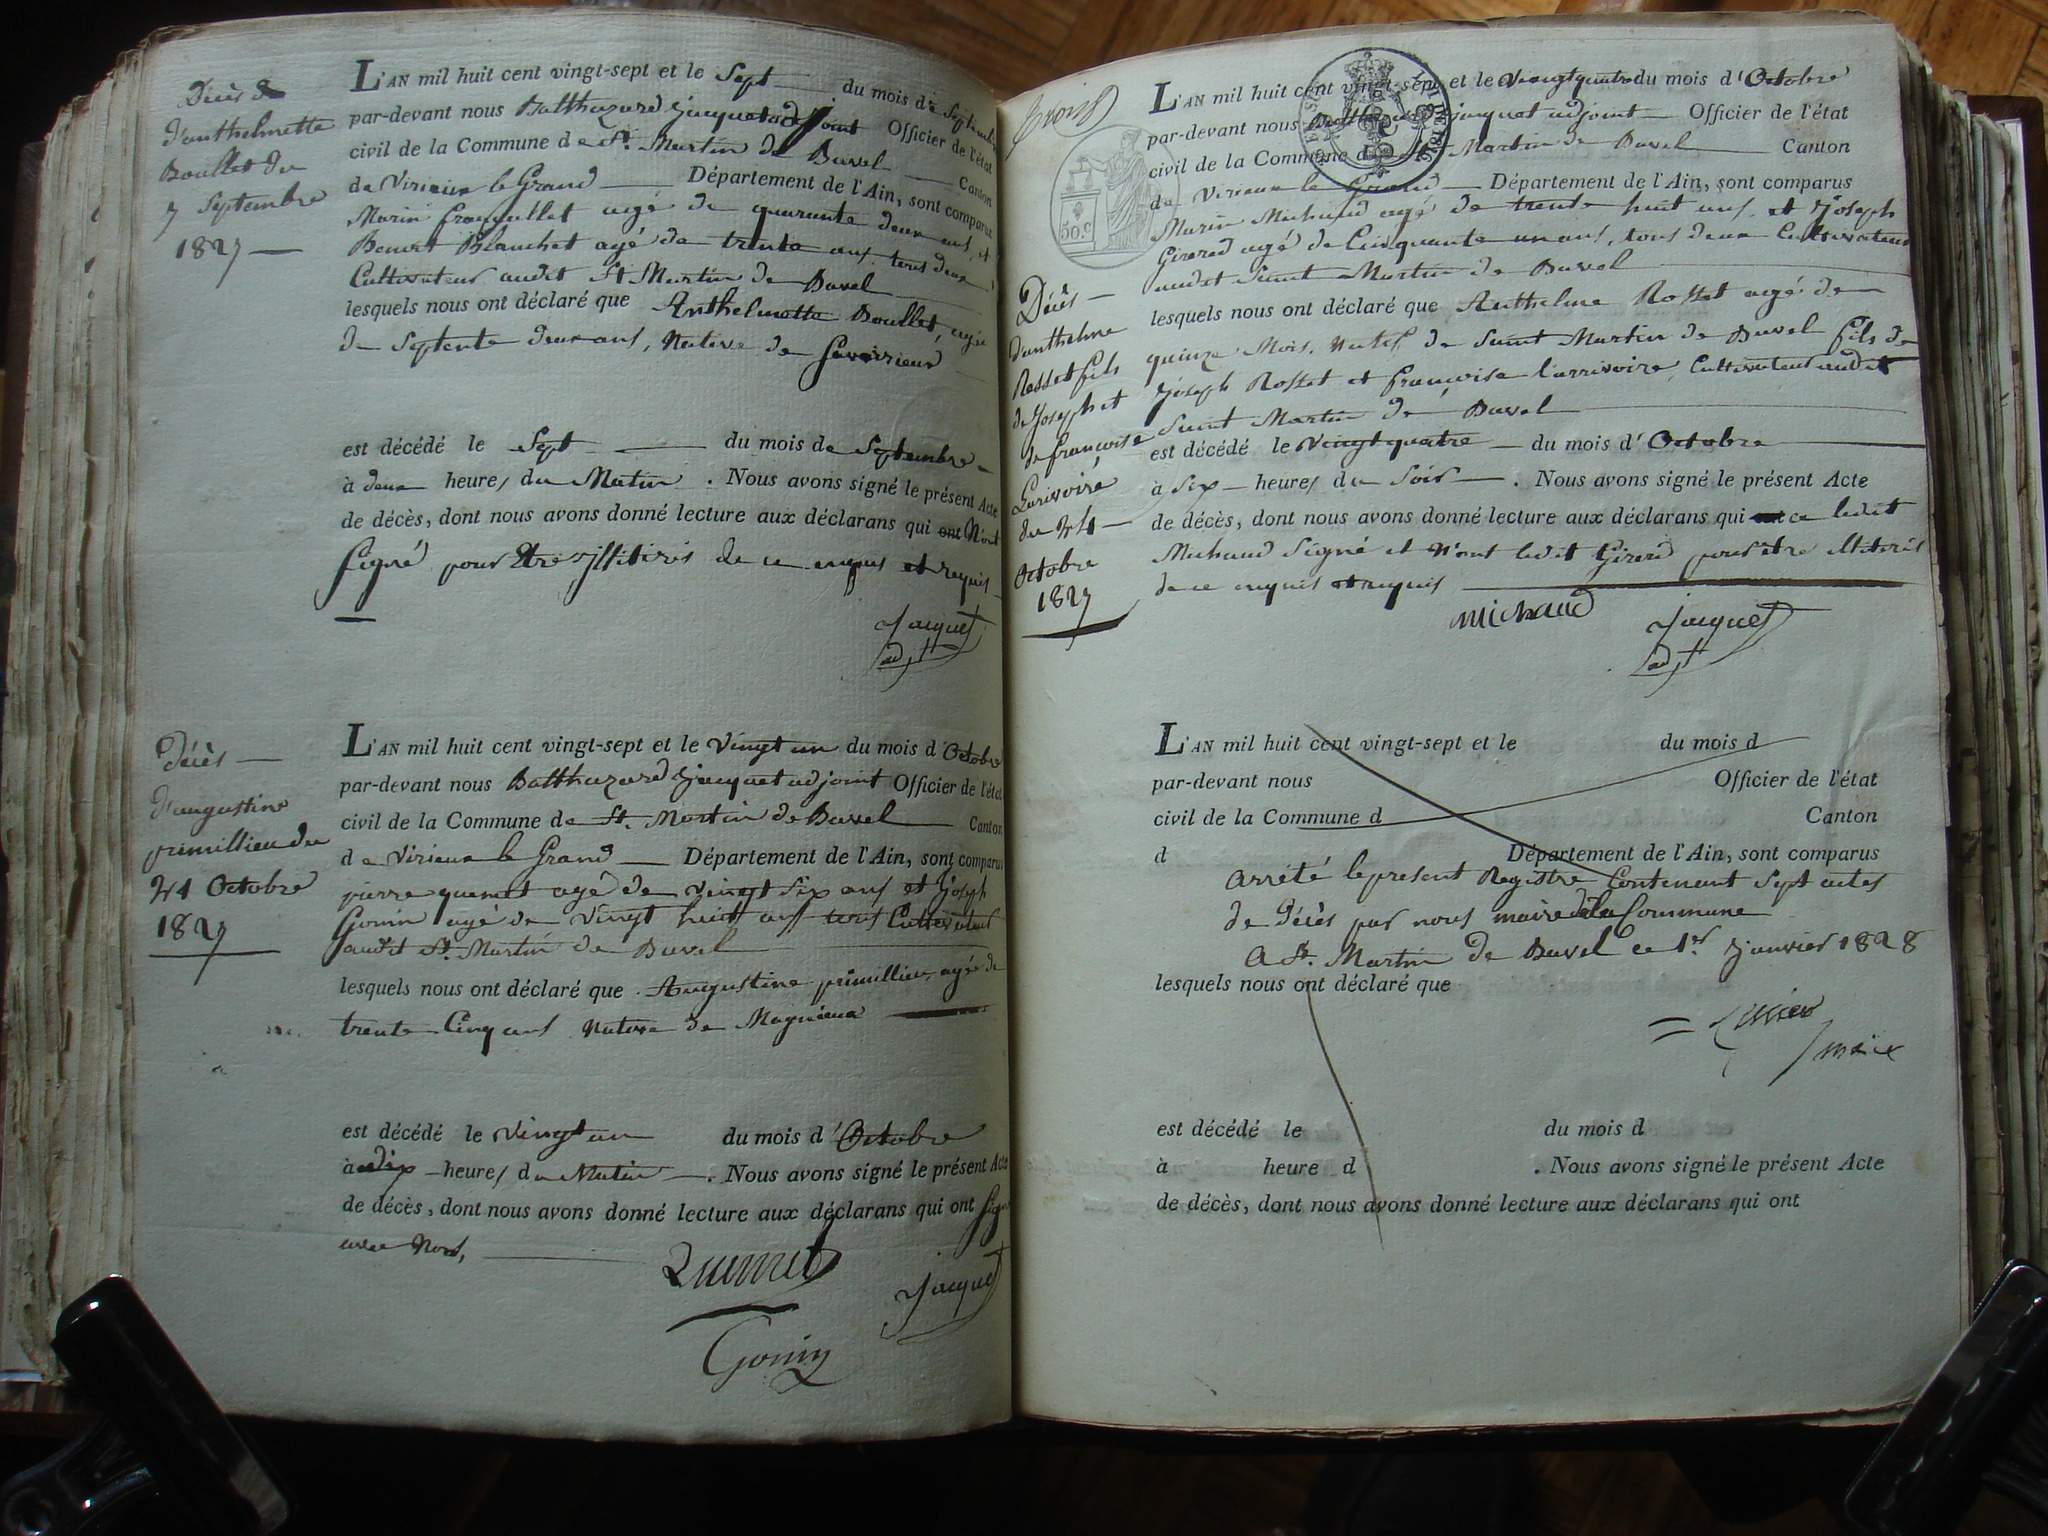 Décès de
d'anthelmette
Boullet du
7 Septembre
1827
L'AN mil huit cent vingt-sept et le Sept du mois de Septembre
par-devant nous Balthazard Jacquet adjoint Officier de l'état
civil de la Commune de St. Martin de Bavel Canton
de Virieux le Grand Département de l'Ain, sont comparus
Marin agé de quarante deux ans, et
Benoit Blanchet agé de trente ans tous deux
Cultivateur audit St Martin de Bavel
lesquels nous ont déclaré que Anthelmette Boullet, agée
de Septente deux ans, Native de
est décédé le Sept du mois de Septembre
à deux heures du Matin. Nous avons signé le présent Acte
de décès, dont nous avons donné lecture aux déclarans qui ont N'ont
Signé pour Etre illitirés de ce enquis et requis
Jacquet
adjt
décès
d'augustine
primillieu du
21 Octobre
1827
L'AN mil huit cent vingt-sept et le Vingt un du mois d'Octobre
par-devant nous Balthazard Jacquet adjoint Officier de l'état
civil de la Commune de St. Martin de Bavel Canton
de Virieux le Grand Département de l'Ain, sont comparus
pierre quemet agé de vingt Six ans et Joseph
Gonin agé de Vingt huit ans tous Cultivateur
audit St. Martin de Bavel
lesquels nous ont déclaré que Augustine primillieu, agée de
trente Cinq ans Native de Magnieux
est décédé le Vingt un du mois d'Octobre
à dix heures du Matin. Nous avons signé le présent Acte
de décès, dont nous avons donné lecture aux déclarans qui ont Signé
avec Nous,
Quemet
Jacquet
Gonin
trois
50.c
L'AN mil huit cent vingt-sept et le Vingt quatre du mois d'Octobre
par-devant nous Balthazard Jacquet adjoint Officier de l'état
civil de la Commune de St Martin de Bavel Canton
de Virieux le Grand Département de l'Ain, sont comparus
Marin Michaud agé de trente huit ans, et Joseph
Girerd agé de Cinquante un ans, tous deux Cultivateur
audit Saint Martin de Bavel
Décès
d'anthelme
Rosset fils
de Joseph et
de françoise
Larivoiré
du 24
Octobre
1827
lesquels nous ont déclaré que Anthelme Rosset agé de
quinze Mois, Natif de Saint Martin de Bavel fils de
Joseph Rosset et françoise Larrivoire, Cultivateur audit
Saint Martin de Bavel
est décédé le Vingt quatre du mois d'Octobre
à Six heures du Soir. Nous avons signé le présent Acte
de décès, dont nous avons donné lecture aux déclarans qui ont ce ledit
Michaud Signé et N'ont ledit Girerd pour être illitirés
de ce enquis et requis
Michaud
Jacquet
adjt
L'AN mil huit cent vingt-sept et le du mois d
par-devant nous Officier de l'état
civil de la Commune d Canton
d Département de l'Ain, sont comparus
Arrété le present Registre Contenant Sept actes
de Décès par nous maire de la Commune
A St. Martin de Bavel ce 1er Janvier 1828
lesquels nous ont déclaré que
maire
est décédé le du mois d
à heure d. Nous avons signé le présent Acte
de décès, dont nous avons donné lecture aux déclarans qui ont